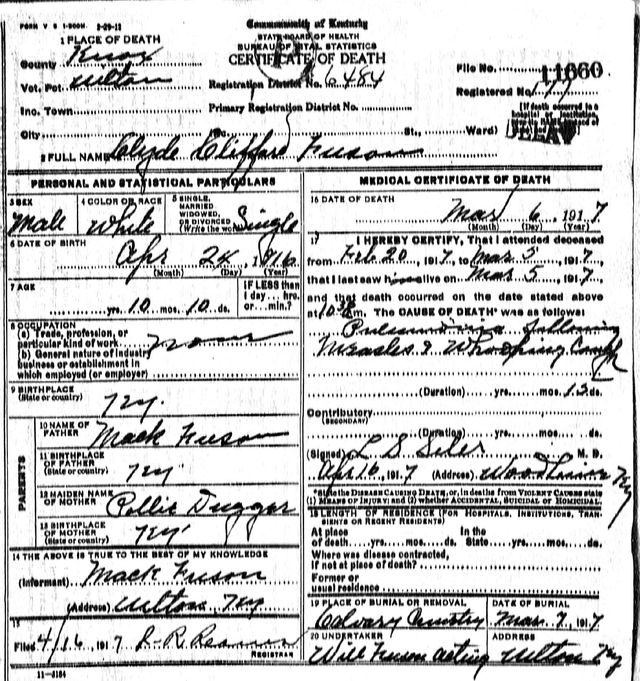 FORM V S 1-200M. 3-29-12
Commonwealth of Kentucky
STATE BOARD OF HEALTH
BUREAU OF VITAL STATISTICS
CERTIFICATE OF DEATH
1 PLACE OF DEATH
County Knox
Vot. Pct. Ulton
Inc. Town
City
Registration District No. 6484
Primary Registration District No.
(No. St., Ward)
File No. 11660
Registered No.
(If death occurred in a hospital or institution, give its NAME instead of street and number)
2 FULL NAME Clyde Clifford Fuson
PERSONAL AND STATISTICAL PARTICULARS
3 SEX
Male
4 COLOR OR RACE
White
5 SINGLE, MARRIED WIDOWED, OR DIVORCED (Write the word)
Single
6 DATE OF BIRTH
Apr 24, 1916
(Month) (Day) (Year)
7 AGE
yrs. 10 mos. 10 ds.
IF LESS than 1 day... hrs. or... min.?
8 OCCUPATION
(a) Trade, profession, or particular kind of work none
(b) General nature of industry business or establishment in which employed (or employer)
9 BIRTHPLACE (State or country)
Ky.
PARENTS
10 NAME OF FATHER
Mack Fuson
11 BIRTHPLACE OF FATHER (State or country)
Ky
12 MAIDEN NAME OF MOTHER
Pollie Dugger
13 BIRTHPLACE OF MOTHER (State or country)
Ky
14 THE ABOVE IS TRUE TO THE BEST OF MY KNOWLEDGE
(Informant) Mack Fuson
(Address) Ulton, Ky
15
Filed 4/16, 1917
REGISTRAR
11-3184
MEDICAL CERTIFICATE OF DEATH
16 DATE OF DEATH
Mar 6, 1917
(Month) (Day) (Year)
17 I HEREBY CERTIFY, That I attended deceased
from Feb 20 1917, to Mar 5, 1917,
that I last saw him alive on Mar 5, 1917
and that death occurred on the date stated above
at 10 m. The CAUSE OF DEATH* was as follows:
Pneumonia following
Measles & Whooping Cough
(Duration) yrs. mos. 15 ds.
Contributory (SECONDARY)
(Duration) yrs. mos. ds.
(Signed) L S Siler M. D.
Apr 16, 1917 (Address) Woodbine Ky
*State the DISEASE CAUSING DEATH, or, in deaths from VIOLENT CAUSES state (1) MEANS OF INJURY; and (2) whether ACCIDENTAL, SUICIDAL or HOMICIDAL.
18 LENGTH OF RESIDENCE (FOR HOSPITALS, INSTITUTIONS, TRANSIENTS OR RECENT RESIDENTS)
At place of death yrs. mos. ds. In the State yrs. mos. ds.
Where was disease contracted, if not at place of death?
Former or usual residence
19 PLACE OF BURIAL OR REMOVAL
Calvary Cemetery
DATE OF BURIAL
Mar. 7, 1917
20 UNDERTAKER
Will Fuson acting
ADDRESS
Ulton Ky